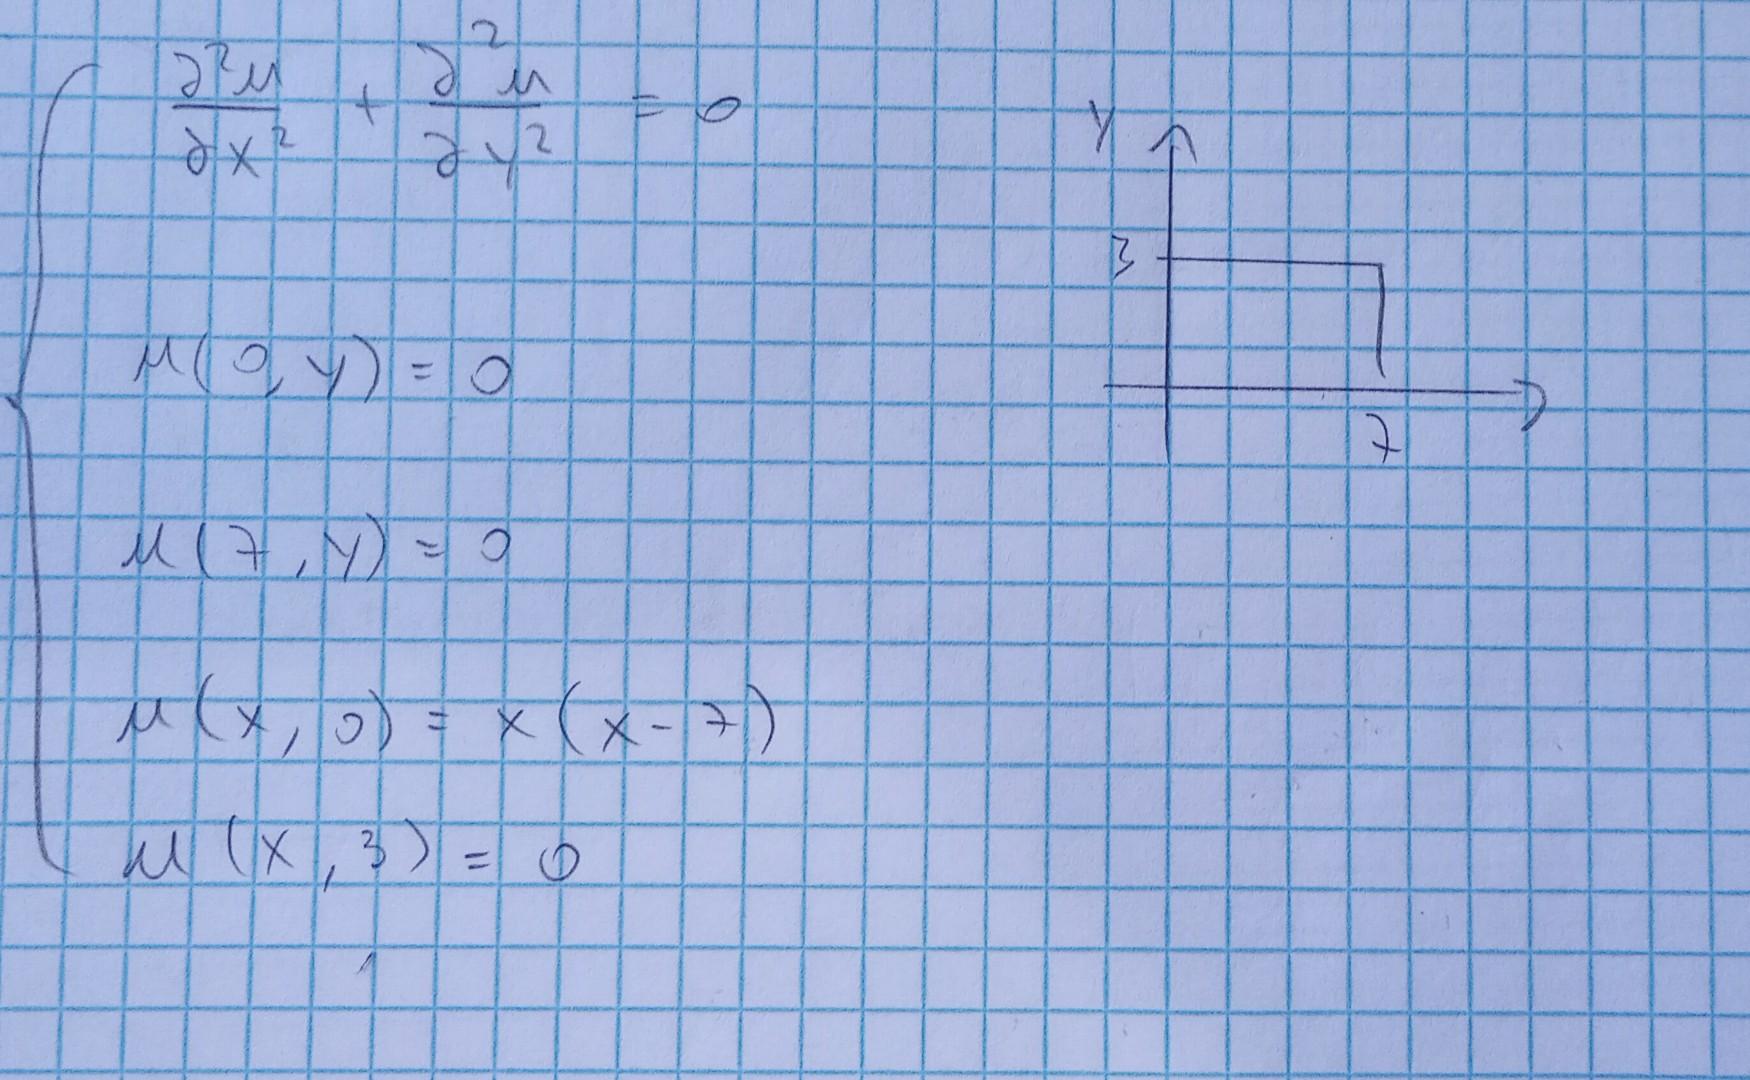 ∂²u/∂x² + ∂²u/∂y² = 0
u(0, y) = 0
u(7, y) = 0
u(x, 0) = x(x-7)
u(x, 3) = 0
y
3
7